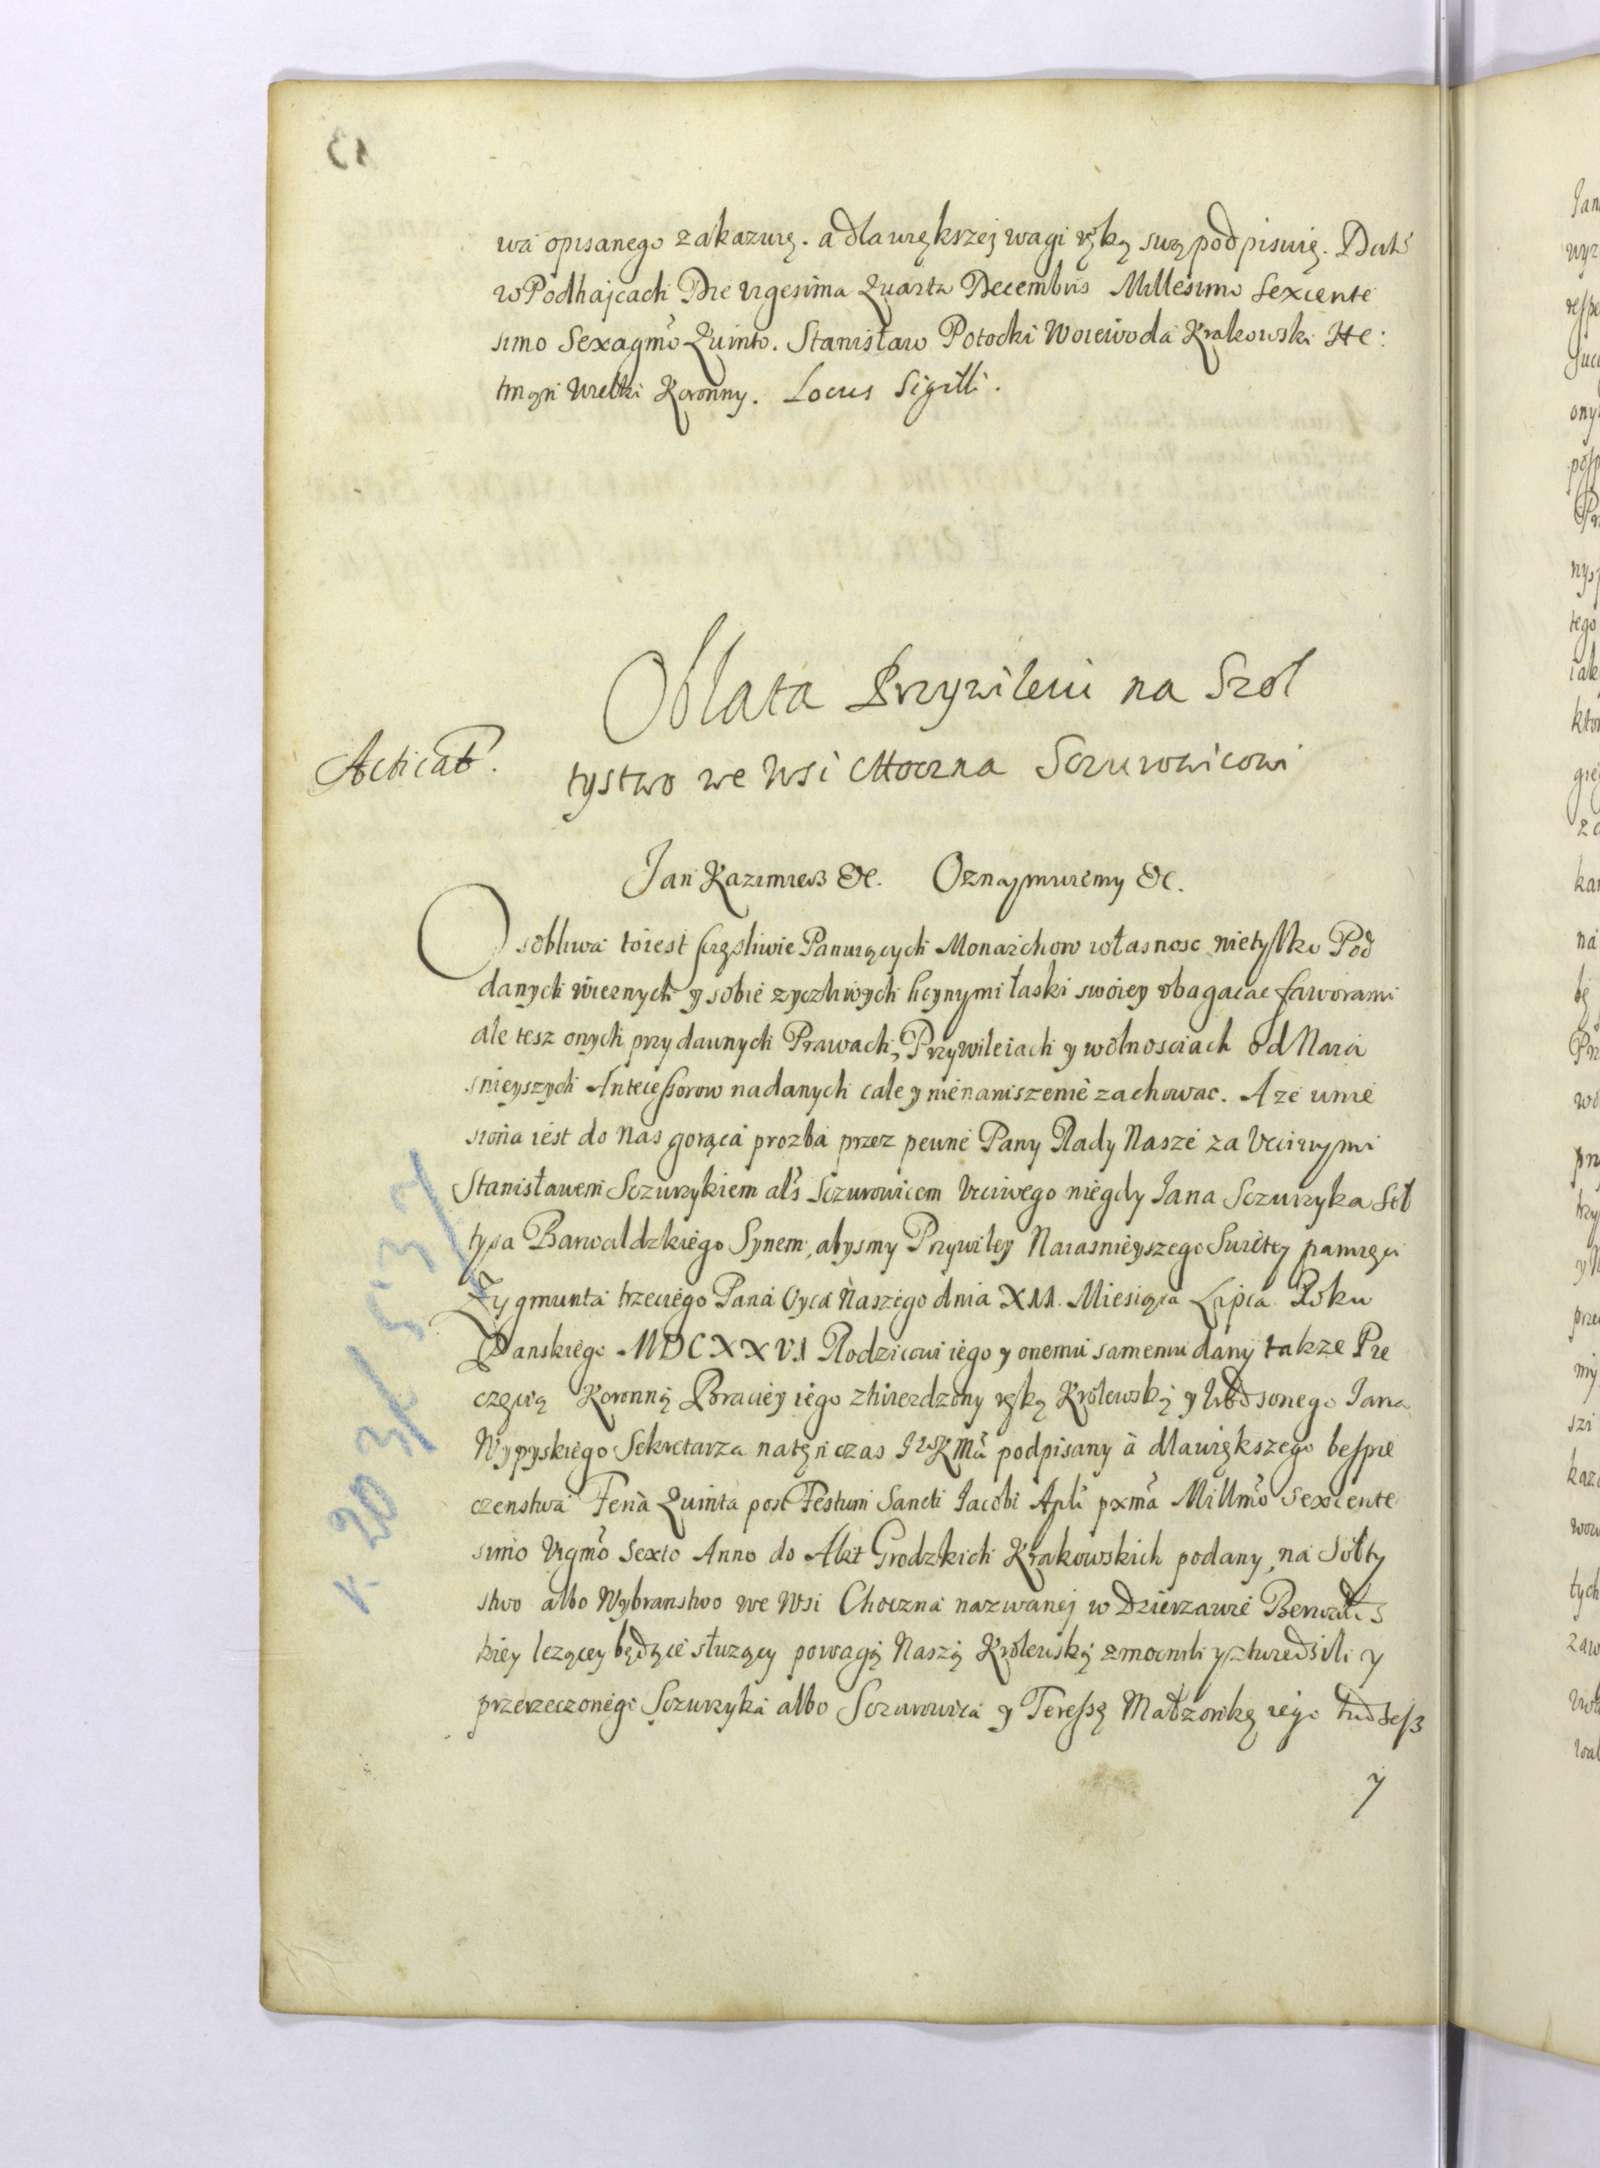 13
wa opisanego zakazuię. a dla większej wagi ręką swą podpisuię. Dat
w Podhajcach Die vigesima Quarta Decembris Millesimo Sexcente
simo Sexagmo Quinto. Stanisław Potocki Woiewoda Krakowski He:
tman Wielki Koronny. Locus Sigilli.
Oblata Przywileiu na Szol
Acticat.
tystwo we Wsi Choczna Sczurowicowi
Jan Kazimierz &c. Oznaymuiemy &c.
Osobliwa to iest szczęśliwie Panuiących Monarchow własnosc nietylko Pod
danych wiernych y sobie zyczliwych hcynymi łaski swoiey vbagacac faworami
ale tesz onych przy dawnych Prawach, Przywileiach y wolnosciach od Naia
snieyszych Antecessorow nadanych cale y nienaruszenie zachowac. A ze wnie
siona iest do Nas gorąca prozba przez pewne Pany Rady Nasze za Vcciwymi
Stanisławem Sczurzykiem als Sczurowicem Vcciwego niegdy Jana Sczurzyka Soł
tysa Barwaldzkiego Synem, abysmy Przywiley Naiasnieyszego Swietey pamięci
Zygmunta trzeciego Pana Oyca Naszego dnia XVI. Miesiąca Lipca Roku
Panskiego MDCXXVI Rodzicowi iego y onemu samemu dany także Pie
częcią Koronną Braciey iego ztwierdzony ręką Krolewską y Urodzonego Jana
Wypyskiego Sekretarza na tęn czas JKMci podpisany à dla większego bespie
czenstwa Feria Quinta post Festum Sancti Jacobi Apli pxma Millmo Sexcente
simo Vigmo Sexto Anno do Akt Grodzkich Krakowskich podany, na Sołty
stwo albo Wybranstwo we Wsi Choczna nazwanej w Dzierzawie Berwałds
kiey lezącey będące słuzący powagą Naszą Krolewską zmocnili y ztwierdzili y
przerzeczonego Sczurzyka albo Sczurowica y Teressę Małzonkę iego tudziesz
y
k 203/537